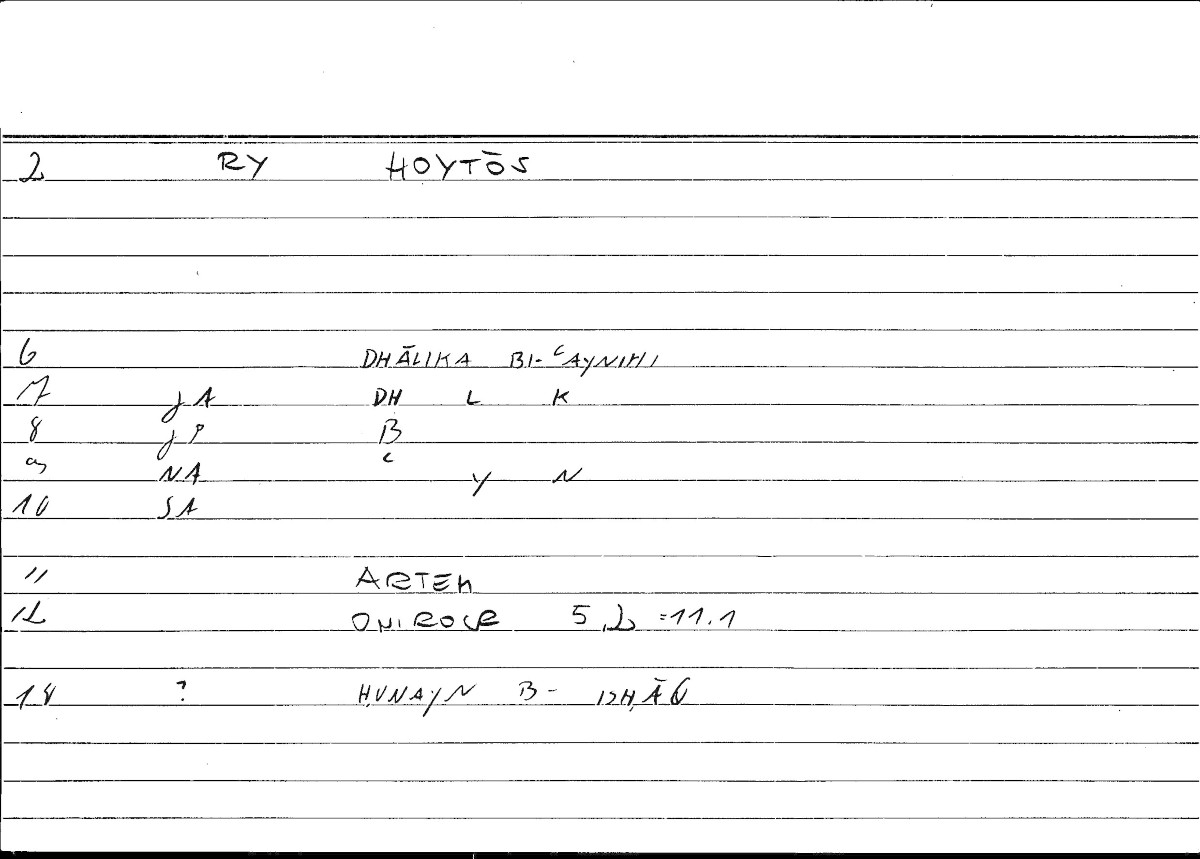 2 RY HOYTŌS
6 DHĀLIKA BI-ʿAYNIHI
7 JA DH L K
8 JP B
9 NA ʿ Y N
10 SA
11 ARTEM
12 ONIROCR 5,2 =11.1
14 ? ḤUNAYN B- ISḤĀQ